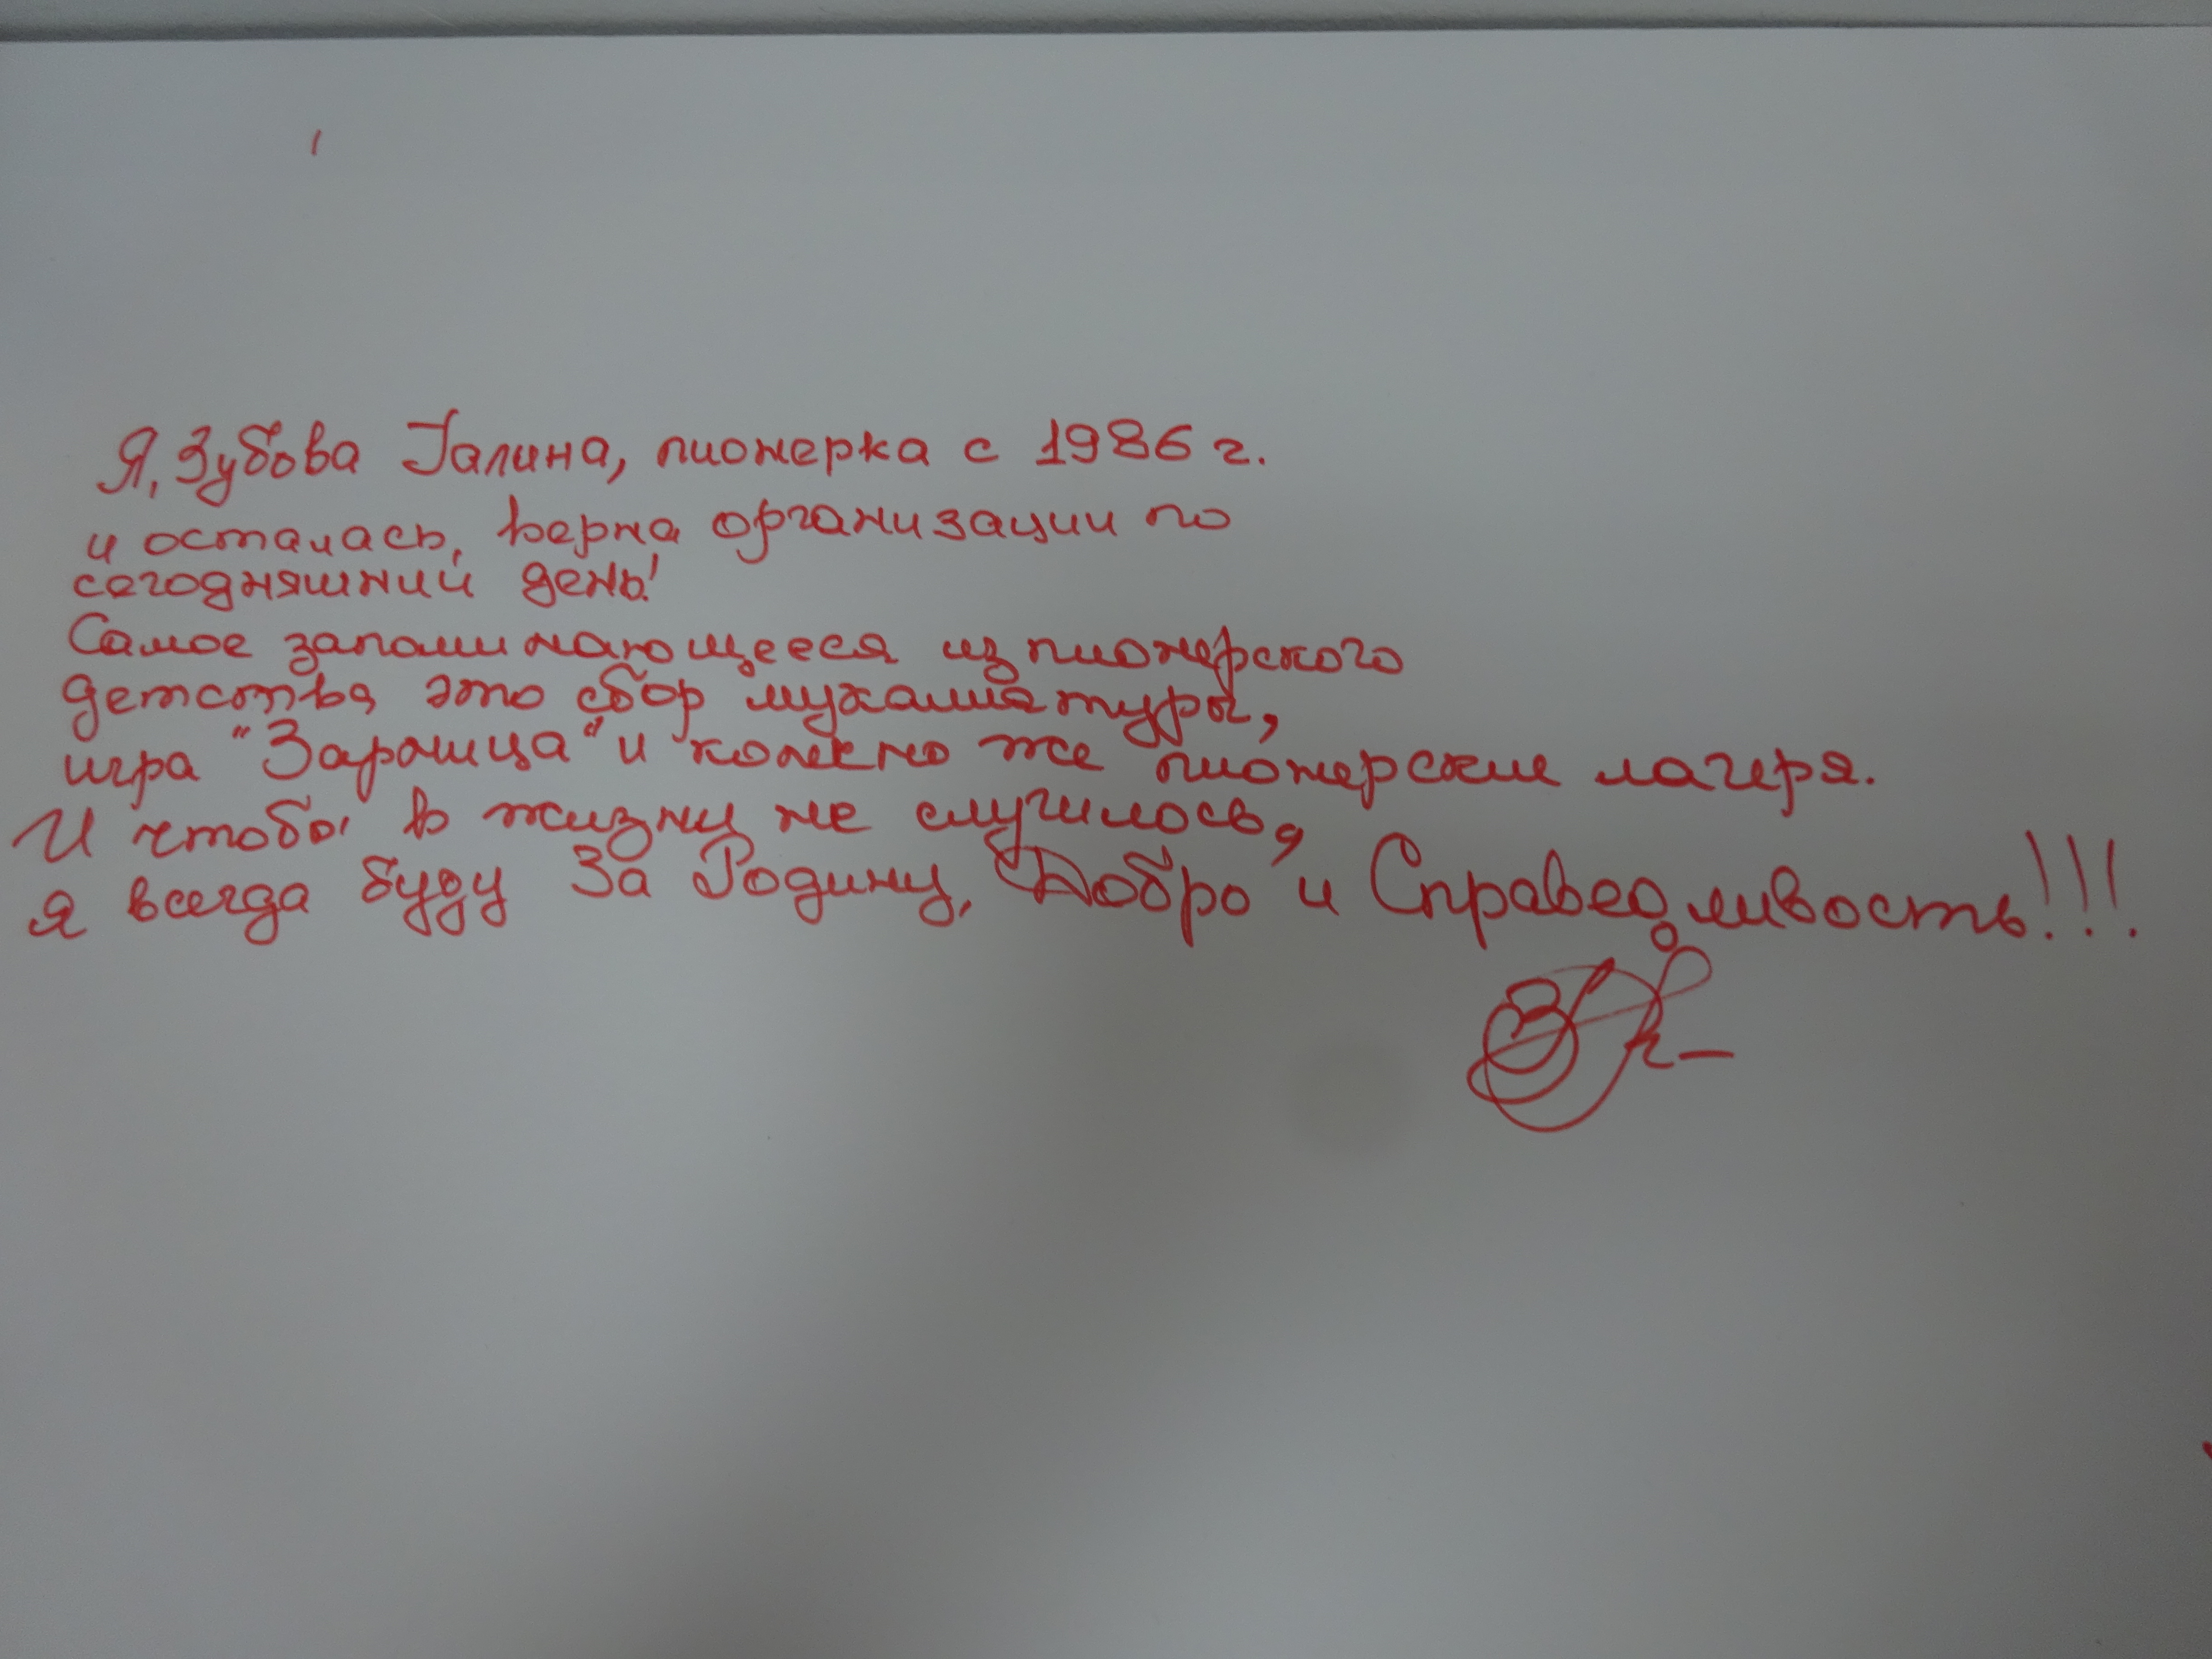 Я, Зубова Галина, пионерка с 1986 г.
и осталась, верна организации по
сегодняшний день!
Самое запоминающееся из пионерского
детства, это сбор мукалатуры,
игра "Зарница" и конечно же пионерские лагеря.
И чтобы в жизни не случилось,
я всегда буду За Родину, Добро и Справедливость!!!